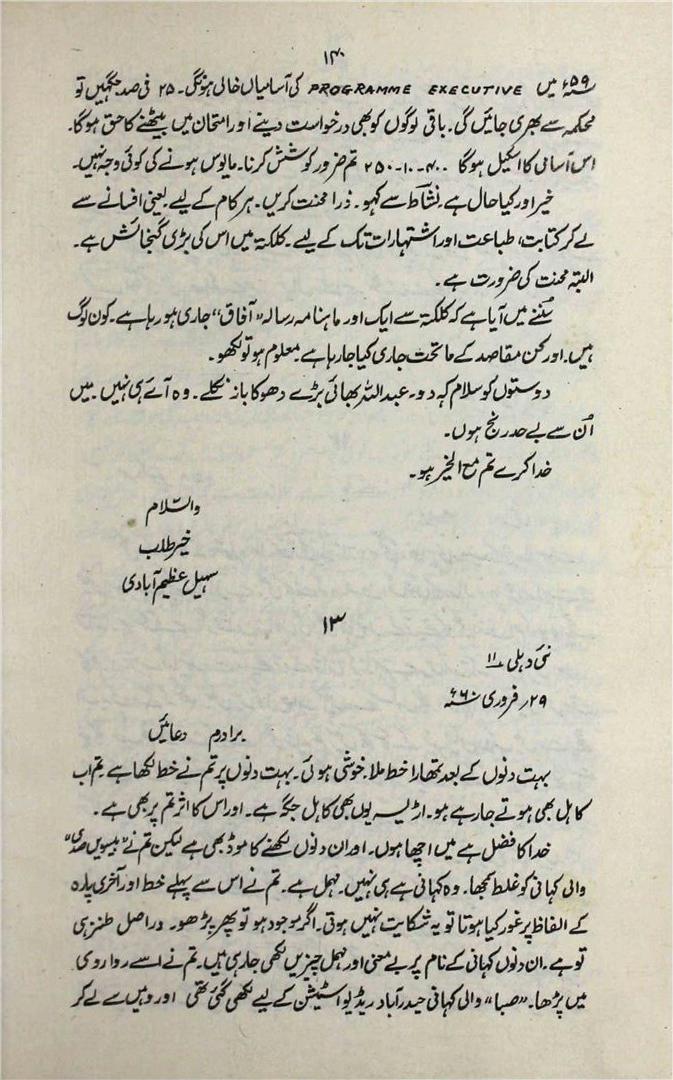 ۱۴۰
۵۹ء میں PROGRAMME EXECUTIVE کی آسامیاں خالی ہونگی۔ ۲۵ فی صد جگہیں تو
محکمہ سے بھری جائیں گی۔ باقی لوگوں کو بھی درخواست دینے اور امتحان میں بیٹھنے کا حق ہوگا۔
اس آسامی کا اسکیل ہوگا ۴۰۰-۱۰-۲۵۰ تم ضرور کوشش کرنا۔ مایوس ہونے کی کوئی وجہ نہیں۔
خیر اور کیا حال ہے۔ نشاط سے کہو۔ ذرا محنت کریں۔ ہر کام کے لیے۔ یعنی افسانے سے
لے کر کتابت، طباعت اور اشتہارات تک کے لیے۔ کلکتہ میں اس کی بڑی گنجائش ہے۔
البتہ محنت کی ضرورت ہے۔
سُننے میں آیا ہے کہ کلکتہ سے ایک اور ماہنامہ رسالہ "آفاق" جاری ہو رہا ہے۔ کون لوگ
ہیں۔ اور کن مقاصد کے ماتحت جاری کیا جا رہا ہے۔ معلوم ہو تو لکھو۔
دوستوں کو سلام کہہ دو۔ عبداللہ بھائی بڑے دھوکا باز نکلے۔ وہ آئے ہی نہیں۔ میں
اُن سے بے حد رنج ہوں۔
خدا کرے تم مع الخیر ہو۔
والسّلام
خیر طلب
سہیل عظیم آبادی
۱۳
نئی دہلی ۱۱
۲۹؍ فروری ۶۰ء
برادرم دعائیں
بہت دنوں کے بعد تمھارا خط ملا۔ خوشی ہوئی۔ بہت دنوں پر تم نے خط لکھا ہے۔ تم اب
کاہل بھی ہوتے جا رہے ہو۔ اڑیسہ یوں بھی کاہل جگہ ہے۔ اور اس کا اثر تم پر بھی ہے۔
خدا کا فضل ہے میں اچھا ہوں۔ اور ان دنوں لکھنے کا موڈ بھی ہے لیکن تم نے "بیسویں صدی"
والی کہانی کو غلط سمجھا۔ وہ کہانی ہے ہی نہیں۔ مہمل ہے۔ تم نے اس سے پہلے خط اور آخری پارہ
کے الفاظ پر غور کیا ہوتا تو یہ شکایت نہیں ہوتی۔ اگر موجود ہو تو پھر پڑھو۔ دراصل طنز ہی
تو ہے۔ ان دنوں کہانی کے نام پر بے معنی اور مہمل چیزیں لکھی جا رہی ہیں۔ تم نے اسے رواروی
میں پڑھا۔ "صبا" والی کہانی حیدرآباد ریڈیو اسٹیشن کے لیے لکھی گئی تھی اور وہیں سے لے کر